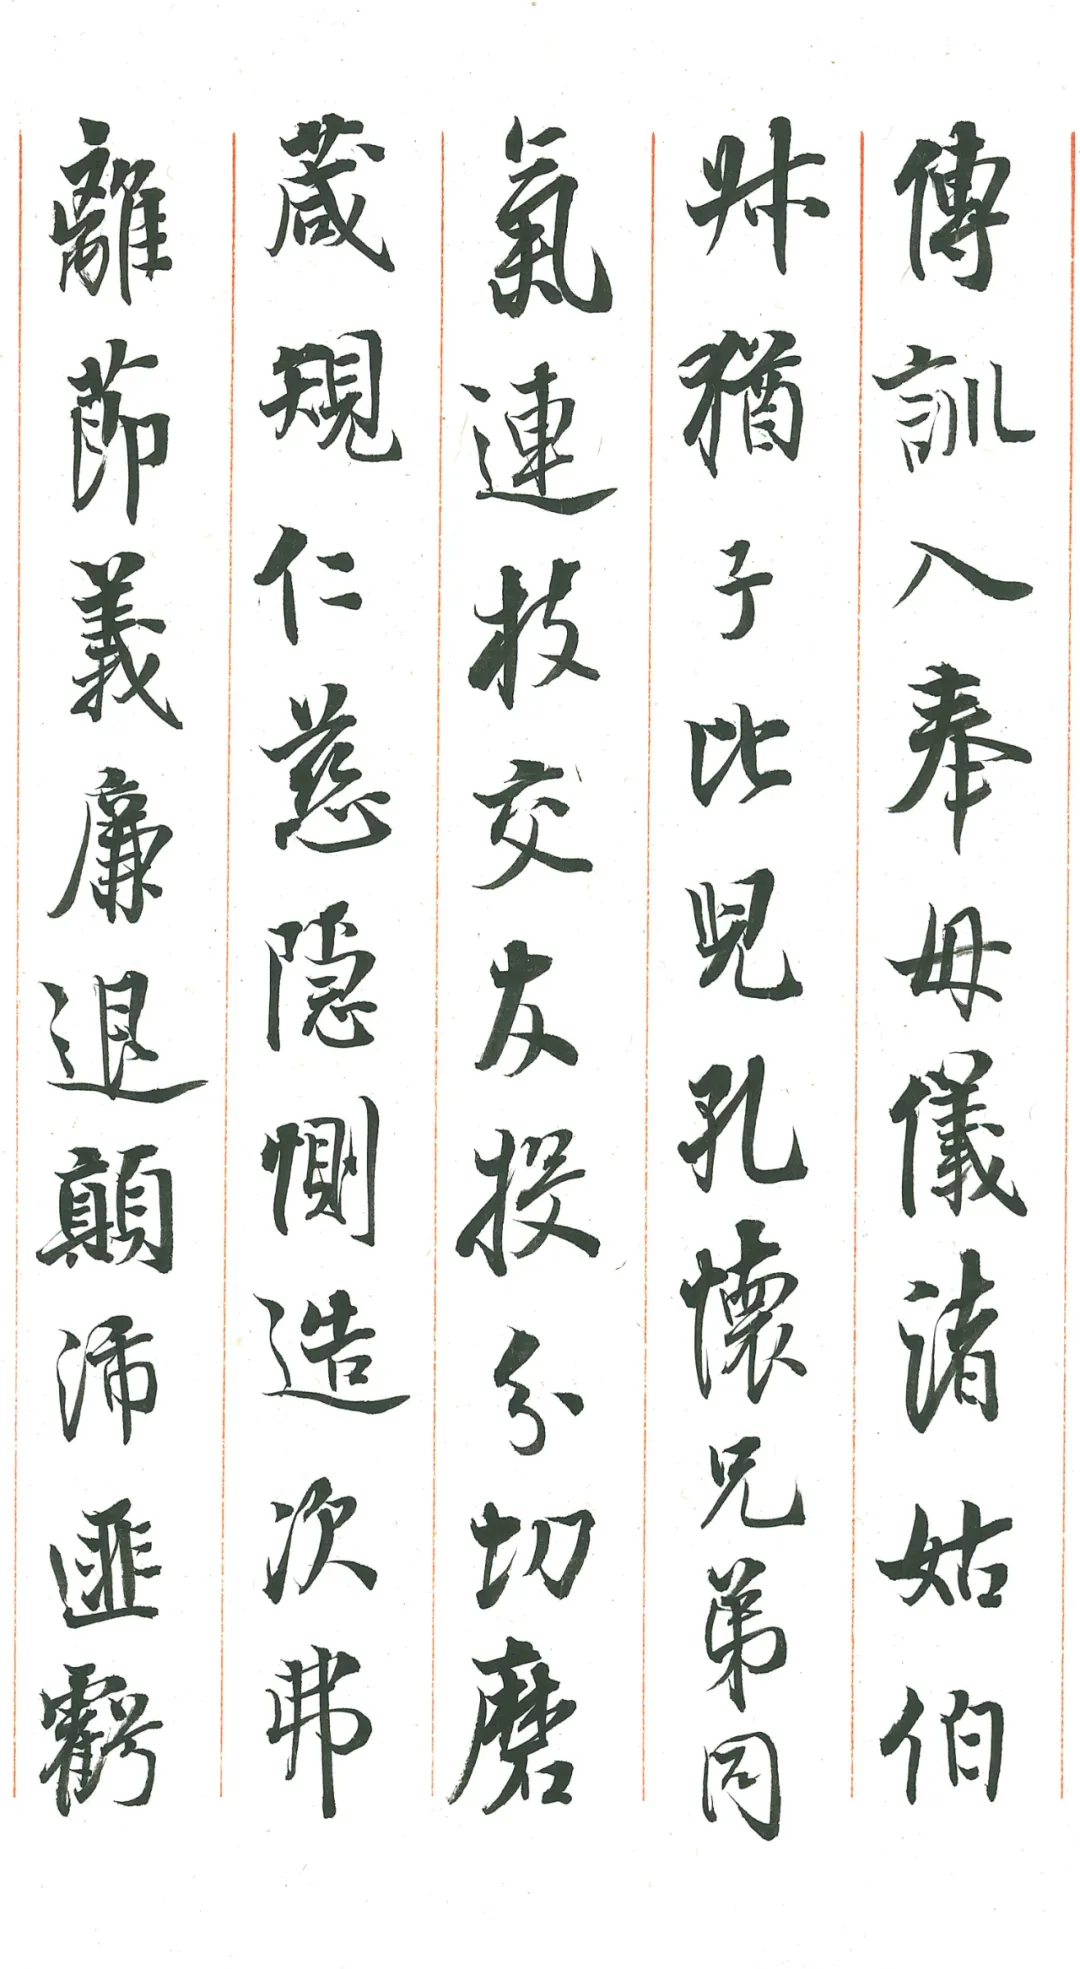 傳訓入奉母儀諸姑伯
叔猶子比兒孔懷兄弟同
氣連枝交友投分切磨
箴規仁慈隱惻造次弗
離節義廉退顛沛匪虧